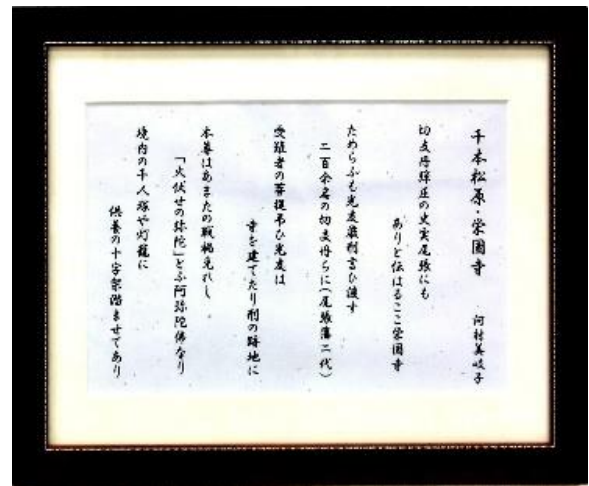 千本松原・栄国寺　　河村美岐子
切支丹弾圧の史実尾張にも
ありと伝はるここ栄国寺
ためらふも光友厳刑言ひ渡す
二百余名の切支丹らに（尾張藩二代）
受難者の菩提弔ひ光友は
寺を建てたり刑の跡地に
本尊はあまたの戦禍免れし
「火伏せの弥陀」とふ阿弥陀佛なり
境内の千人塚や灯籠に
供養の十字架潜ませてあり